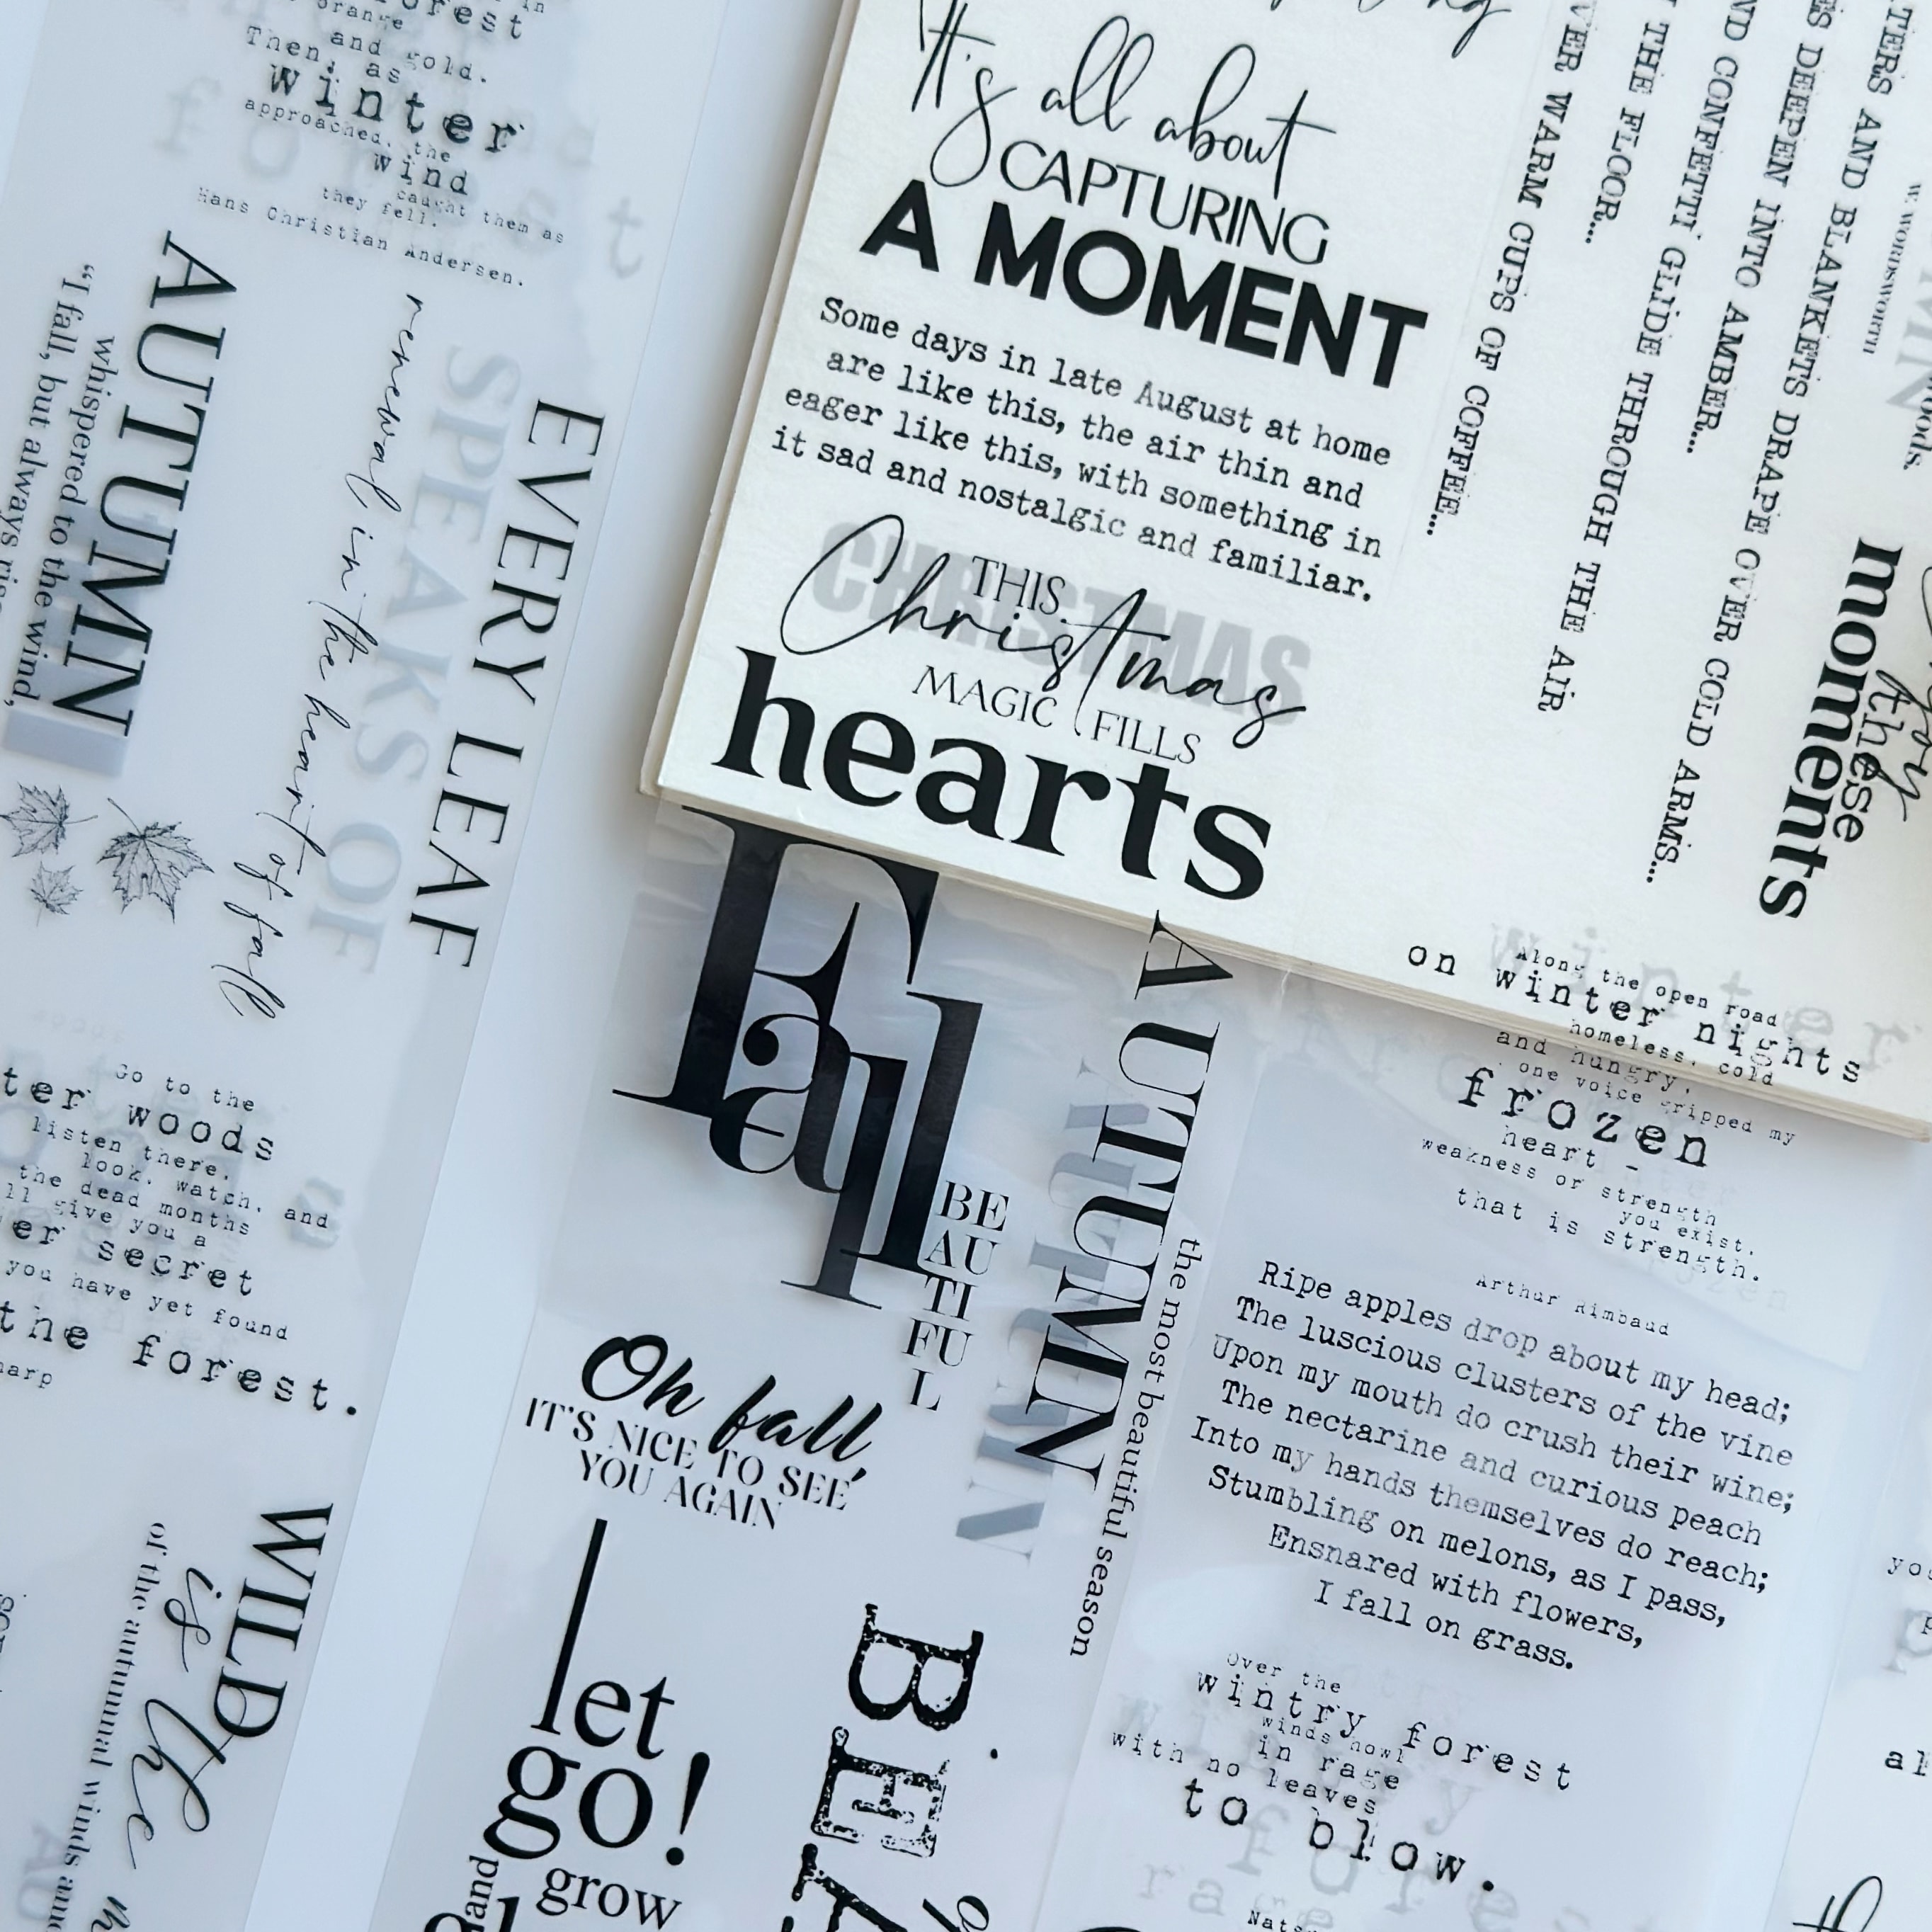 in
forest
orange
and gold.
Then, as
winter
approached, the
wind
caught them as
they fell.
Hans Christian Andersen.
AUTUMN
whispered to the wind,
"I fall, but always
EVERY LEAF
SPEAKS OF
renewal in the heart of fall
Go to the
woods
listen there,
look, watch, and
the dead months
give you a
secret
you have yet found
the forest.
WILD
is the
of the autumnal winds
It's all about
CAPTURING
A MOMENT
Some days in late August at home
are like this, the air thin and
eager like this, with something in
it sad and nostalgic and familiar.
CHRISTMAS
THIS
Christmas
MAGIC FILLS
hearts
WARM CUPS OF COFFEE...
THE FLOOR...
CONFETTI GLIDE THROUGH THE AIR
DEEPEN INTO AMBER...
AND BLANKETS DRAPE OVER COLD ARMS...
W. WORDSWORTH
these
moments
Fall
BE
AU
TI
FU
L
AUTUMN
AUTUMN
the most beautiful season
Oh fall,
IT'S NICE TO SEE
YOU AGAIN
let
go!
and
grow
winter
Along the open road
on winter nights
homeless, cold
and hungry,
one voice gripped my
frozen
heart -
weakness or strength
you exist,
that is strength.
Arthur Rimbaud
Ripe apples drop about my head;
The luscious clusters of the vine
Upon my mouth do crush their wine;
The nectarine and curious peach
Into my hands themselves do reach;
Stumbling on melons, as I pass,
Ensnared with flowers,
I fall on grass.
Over the
wintry forest
winds howl
in rage
with no leaves
to blow.